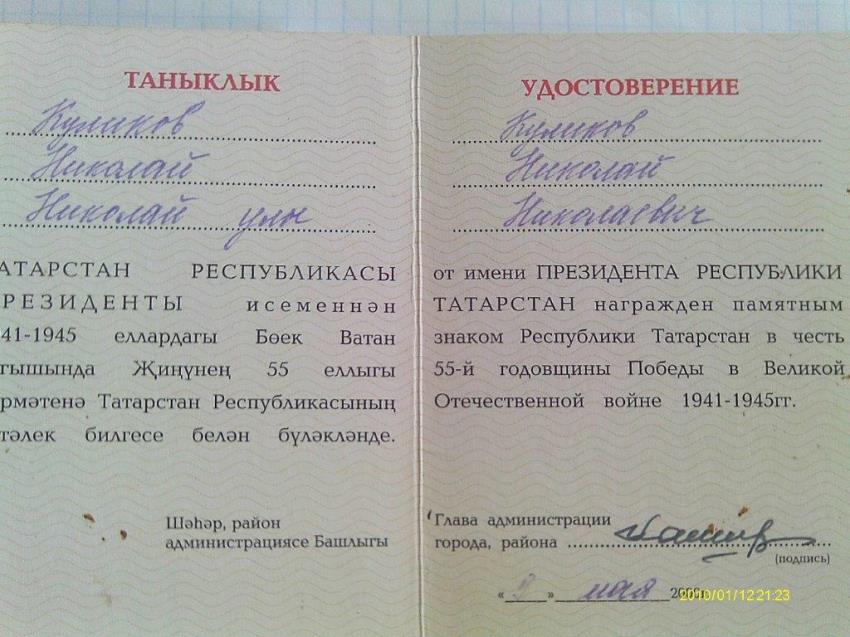 ТАНЫКЛЫК
Куликов
Николай
Николай улы
АТАРСТАН РЕСПУБЛИКАСЫ
РЕЗИДЕНТЫ исеменнән
41-1945 еллардагы Бөек Ватан
гышында Җиңүнең 55 еллыгы
рмәтенә Татарстан Республикасының
тәлек билгесе белән бүләкләнде.
Шәһәр, район
администрациясе Башлыгы
УДОСТОВЕРЕНИЕ
Куликов
Николай
Николаевич
от имени ПРЕЗИДЕНТА РЕСПУБЛИКИ
ТАТАРСТАН награжден памятным
знаком Республики Татарстан в честь
55-й годовщины Победы в Великой
Отечественной войне 1941-1945гг.
Глава администрации
города, района
(подпись)
«9» мая
2010/01/12 21:23